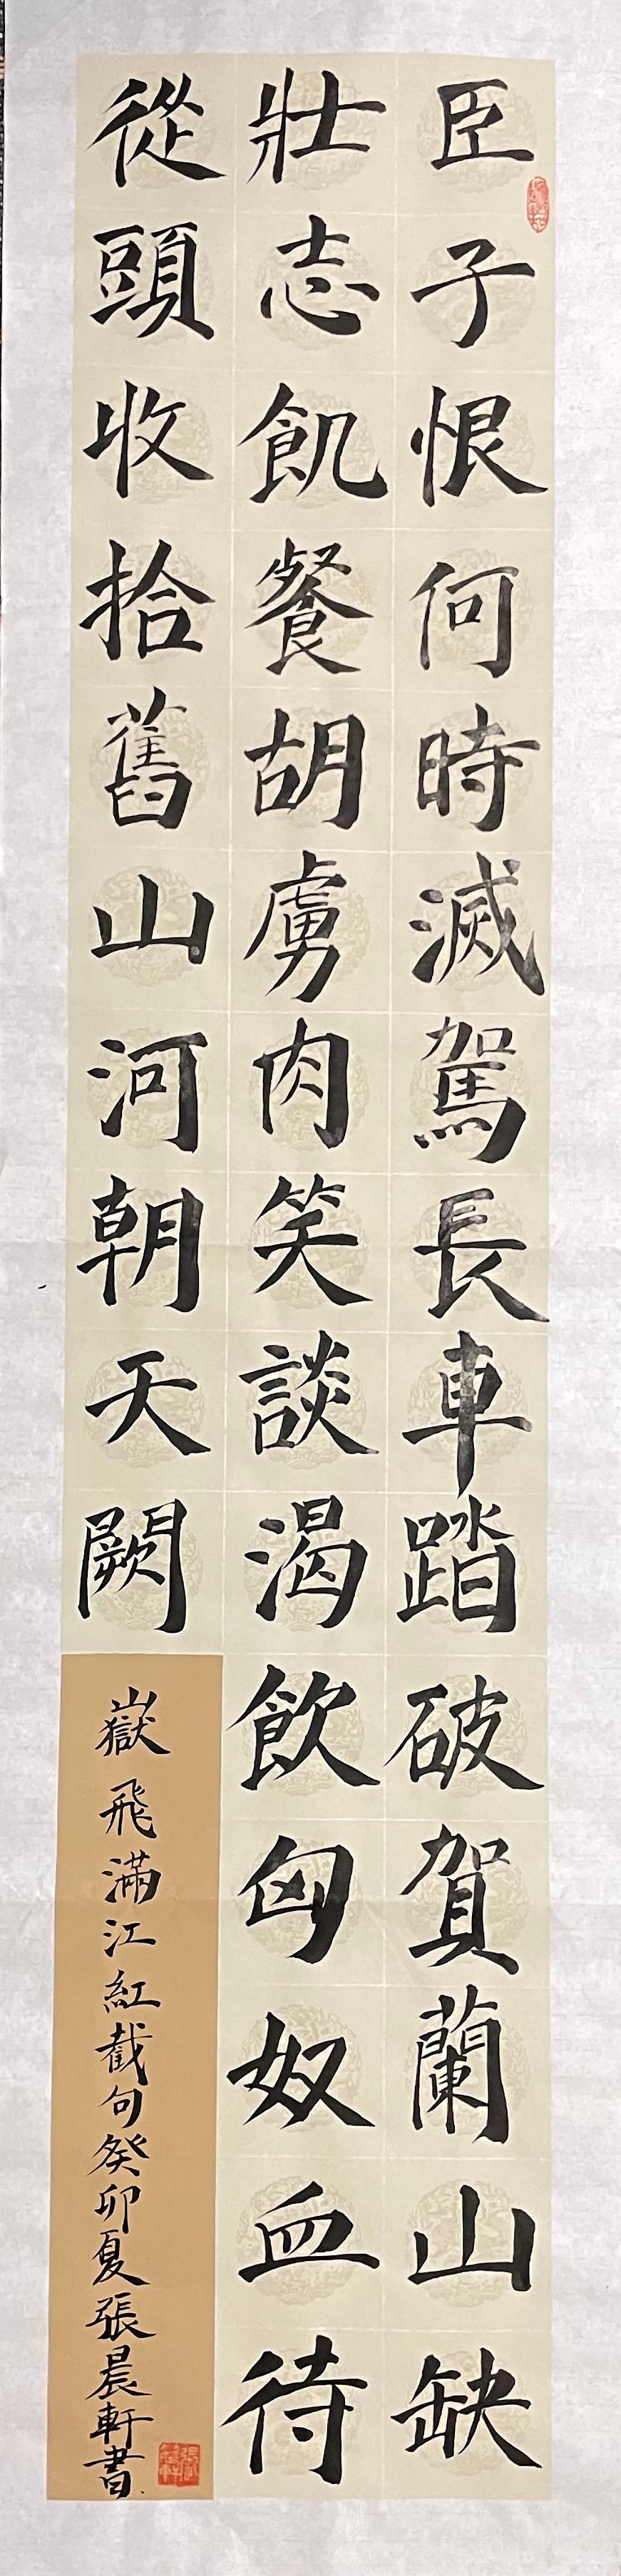 臣子恨何時滅駕長車踏破賀蘭山缺
壯志飢餐胡虜肉笑談渴飲匈奴血待
從頭收拾舊山河朝天闕
嶽飛滿江紅截句癸卯夏張晨軒書